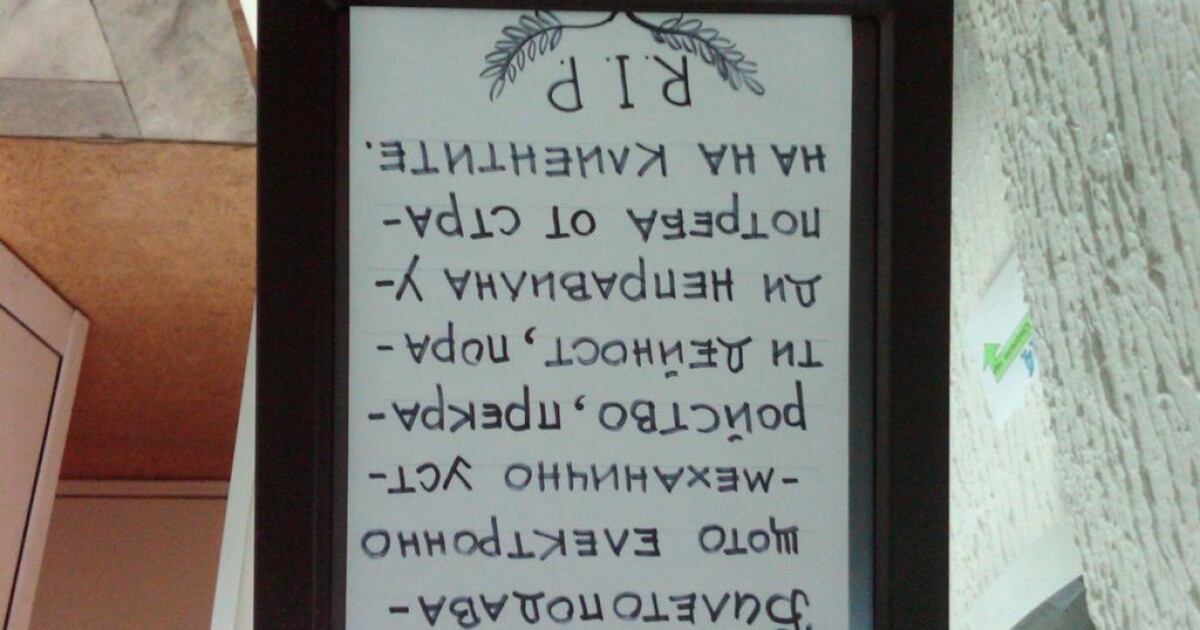 Билетоподава-
щото електронно
-механично уст-
ройство, прекра-
ти дейност, пора-
ди неправилна у-
потреба от стра-
на на клиентите.
R.I.P.